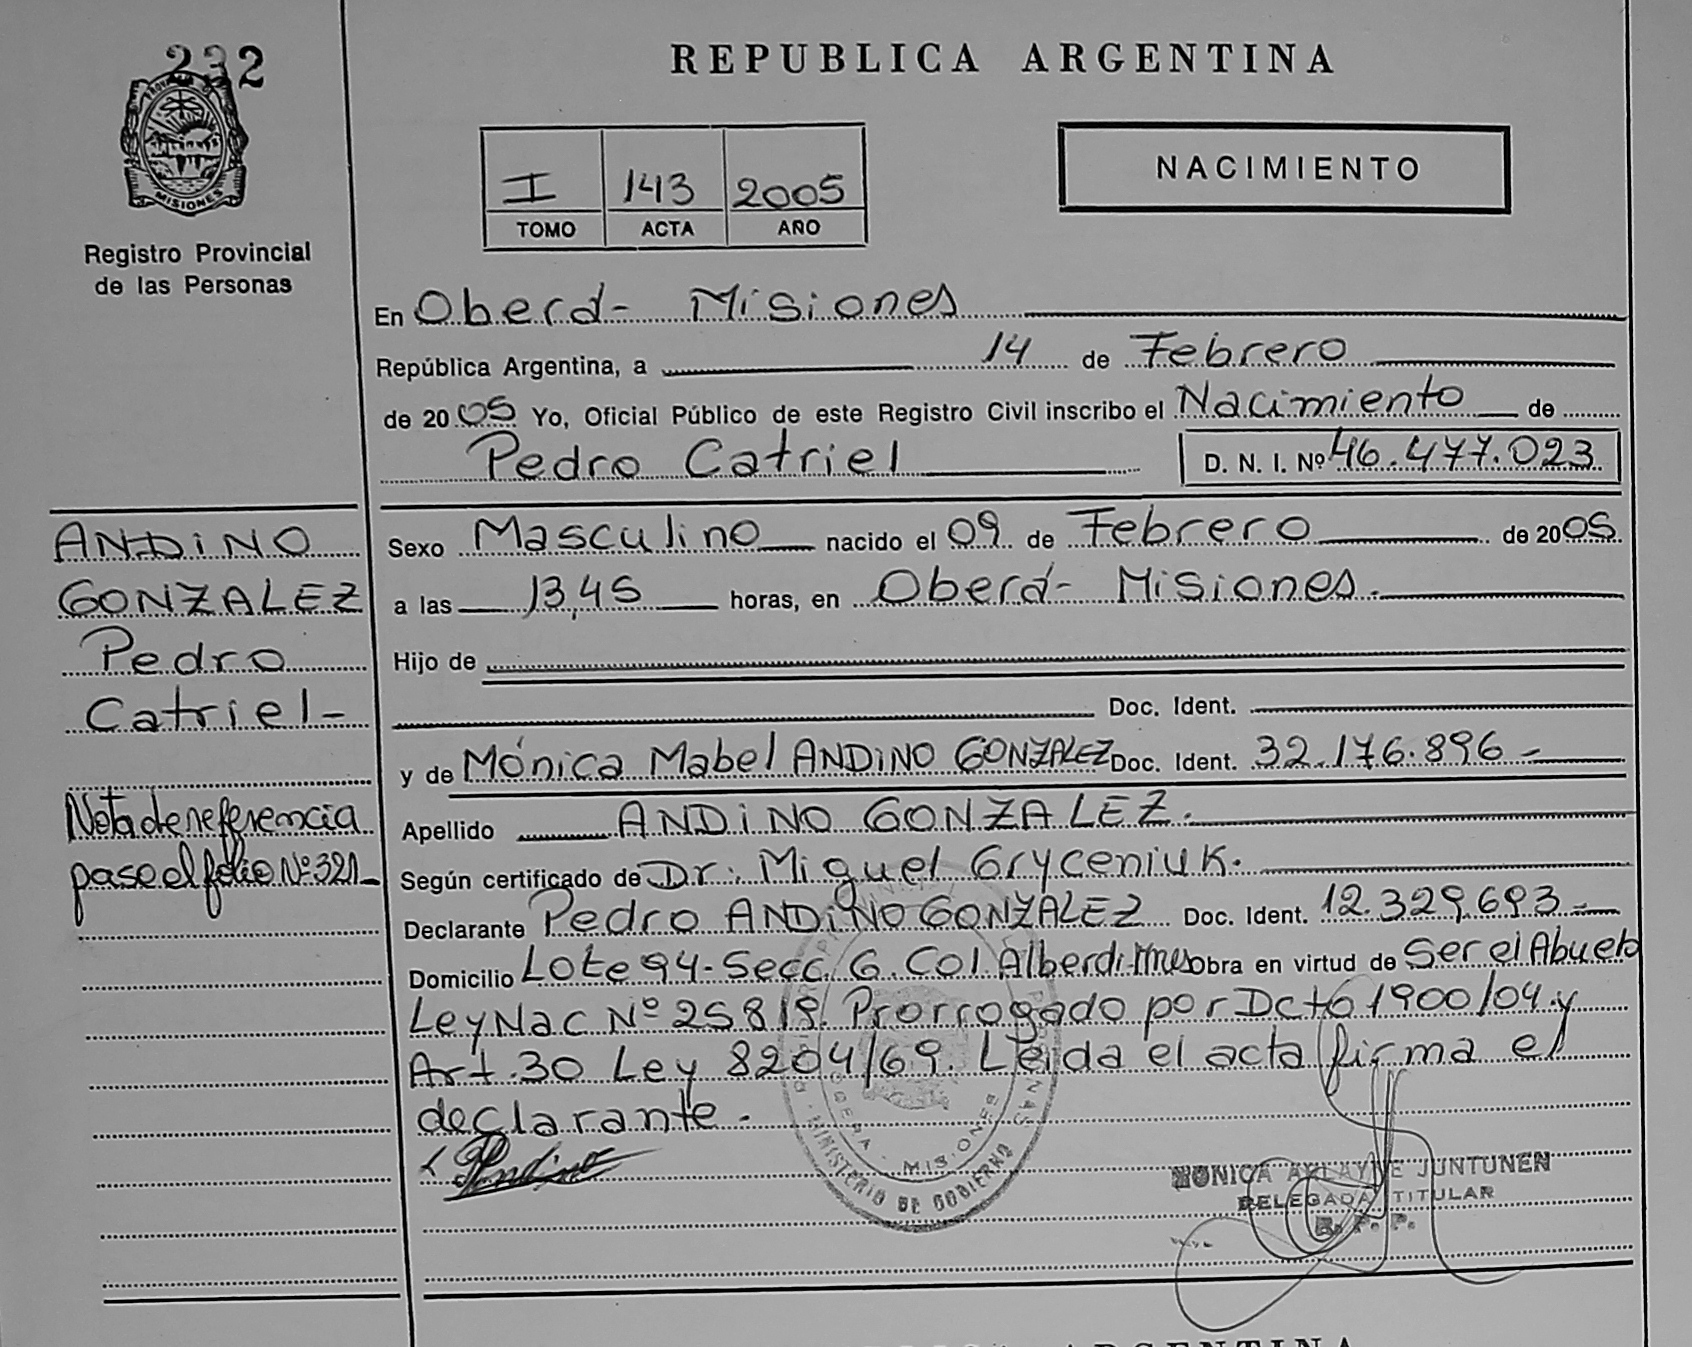 232
PROVINCIA DE
MISIONES
Registro Provincial
de las Personas
REPUBLICA ARGENTINA
I 143 2005
TOMO ACTA AÑO
NACIMIENTO
En Oberá- Misiones
República Argentina, a 14 de Febrero
de 2005 Yo, Oficial Público de este Registro Civil inscribo el Nacimiento de
Pedro Catriel D. N. I. Nº 46.477.023
ANDINO
GONZALEZ
Pedro
Catriel-
Nota de referencia
pase el folio Nº 321-
Sexo Masculino nacido el 09 de Febrero de 2005
a las 13,45 horas, en Oberá- Misiones.
Hijo de
Doc. Ident.
y de Mónica Mabel ANDINO GONZALEZ Doc. Ident. 32.176.896-
Apellido ANDINO GONZALEZ.
Según certificado de Dr. Miguel Gryceniuk.
Declarante Pedro ANDINO GONZALEZ Doc. Ident. 12.329.693-
Domicilio Lote 94- Secc. 6. Col Alberdi. Mnes obra en virtud de Ser el Abuelo
Ley Nac Nº 25819. Prorrogado por Dcto 1900/04 y
Art. 30 Ley 8204/69. Leída el acta firma el
declarante.
Andino
MISIONES
MINISTERIO DE GOBIERNO
MONICA JUNTUNEN
DELEGADA TITULAR
R. P. P.
REPUBLICA ARGENTINA